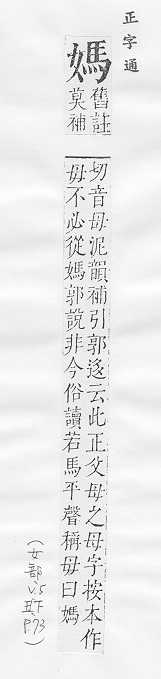 正字通
媽
舊註
莫補
切音母泥韻補引郭迻云此正父母之母字按本作
母不必從媽郭說非今俗讀若馬平聲稱母曰媽
(女部